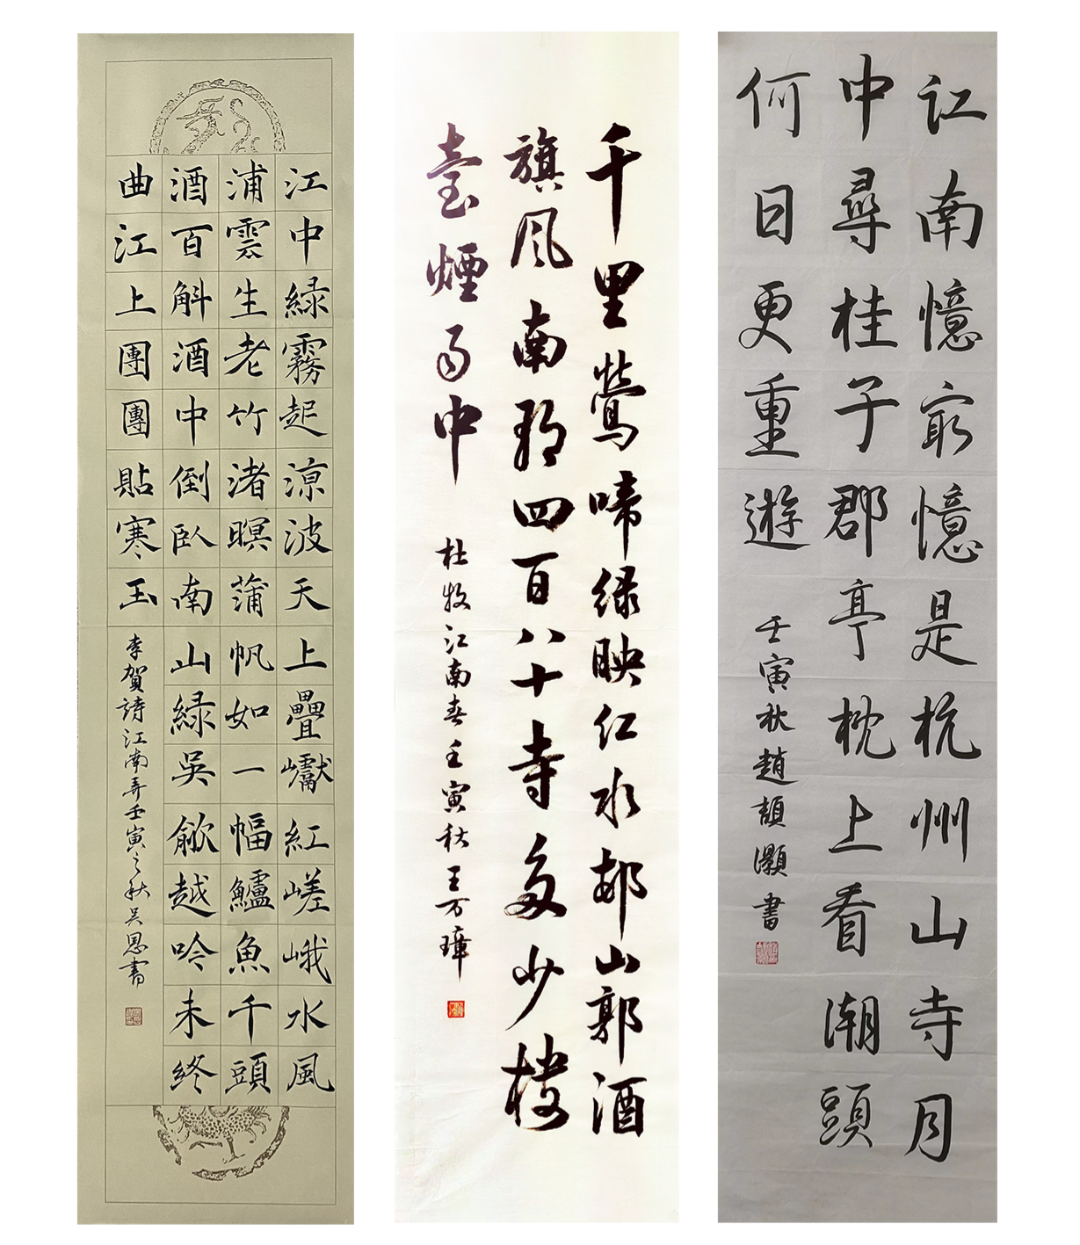 江中綠霧起涼波天上疊巘紅嵯峨水風
浦雲生老竹渚暝蒲帆如一幅鱸魚千頭
酒百斛酒中倒臥南山綠吳歈越吟未終
曲江上團團貼寒玉
李賀詩江南弄壬寅之秋吳恩書
千里鶯啼綠映紅水邨山郭酒
旗風南朝四百八十寺多少樓
臺煙雨中
杜牧江南春壬寅秋王万璋
江南憶最憶是杭州山寺月
中尋桂子郡亭枕上看潮頭
何日更重遊
壬寅秋趙頡灝書